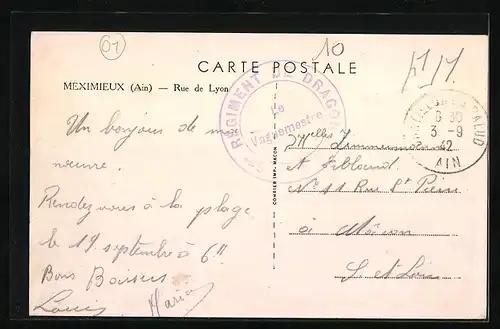 01
10
CARTE POSTALE
MEXIMIEUX (Ain) — Rue de Lyon
RÉGIMENT DE DRAGONS
Le Vaguemestre
COMBIER IMP. MACON
6 30
3 - 9
42
AIN
Un bonjour de ma
Rendez vous à la plage
le 19 septembre à 6h
Bons Baisers
Louis
Maria
Melles Zimmermann
et
No 11 Rue St Pierre
à Mâcon
S. et Loire